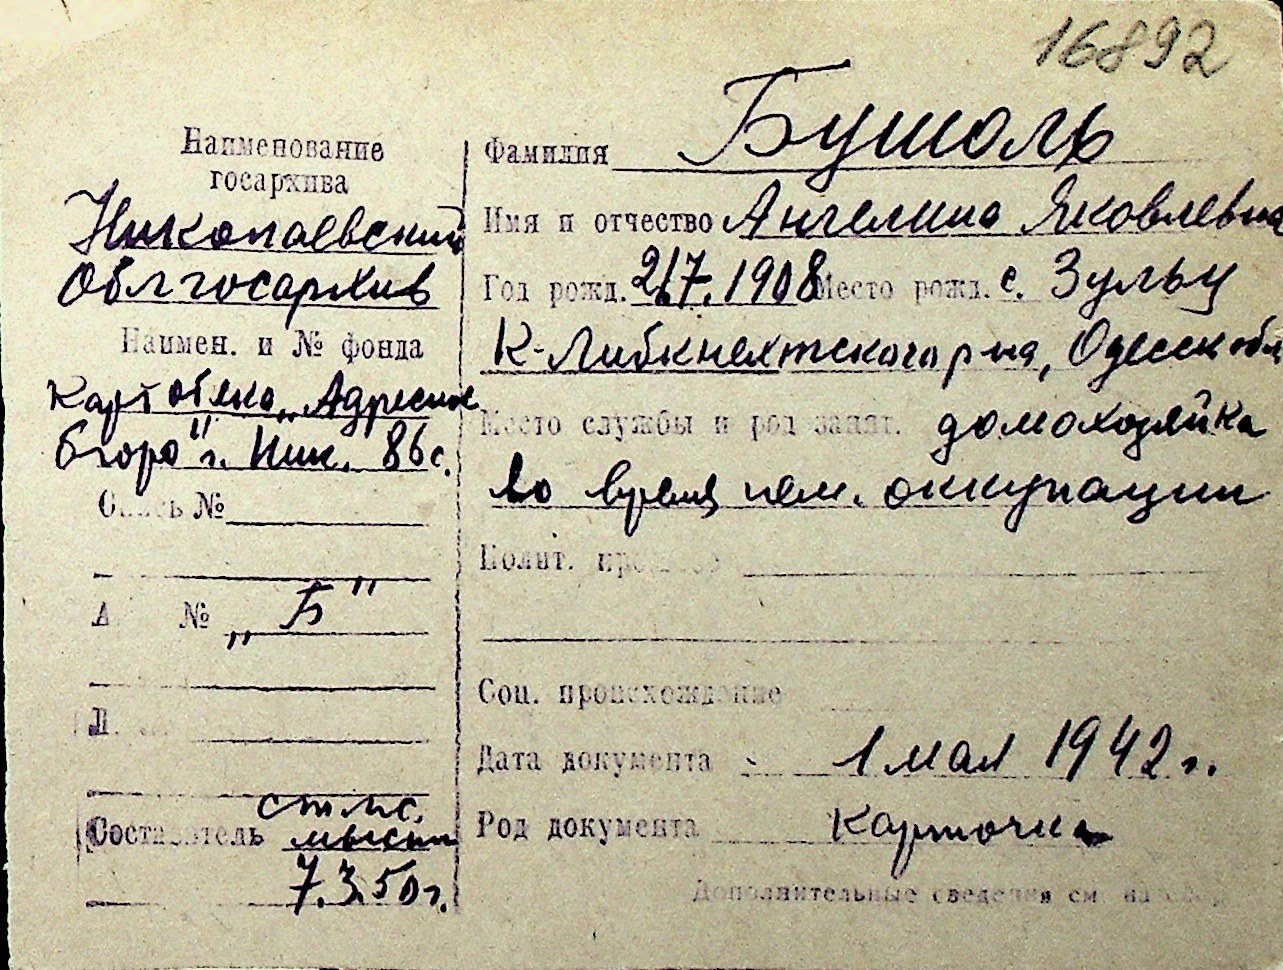 16892
Наименование
госархива
Николаевский
Облгосархив
Наимен. и № фонда
Картотека „Адресное
бюро" г. Ник. 86 с.
Опись №
№ „Б"
Л.
Составитель ст. н. с.
7.3.50 г.
Фамилия Бушоль
Имя и отчество Ангелина Яковлевна
Год рожд. 2/7.1908 Место рожд. с. Зульц
К-Либкнехтского р-на, Одесск обл
Место службы и род занят. домохозяйка
во время нем. оккупации
Полит.
Соц. происхождение
Дата документа 1 мая 1942 г.
Род документа карточка
Дополнительные сведения см. на